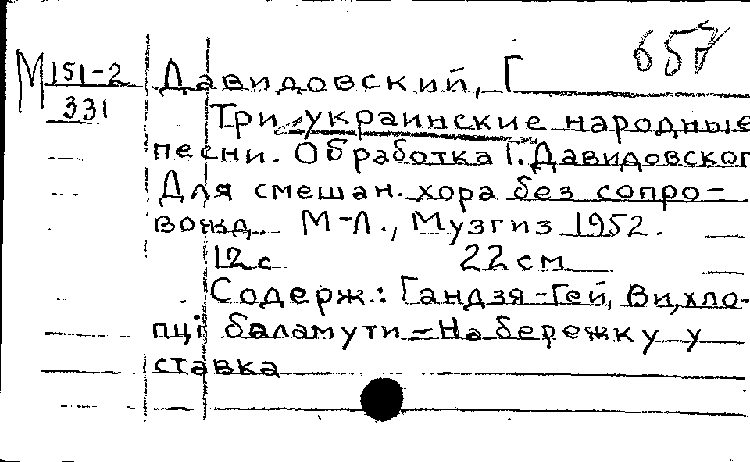 657
М 151-2
331
Давидовский, Г
Три украинские народные
песни. Обработка Г. Давидовског
Для смешан. хора без сопро-
вожд. М-Л., Музгиз 1952.
12с 22см
Содерж.: Гандзя - Гей, Ви, хло-
пці баламути - На бережку у
ставка